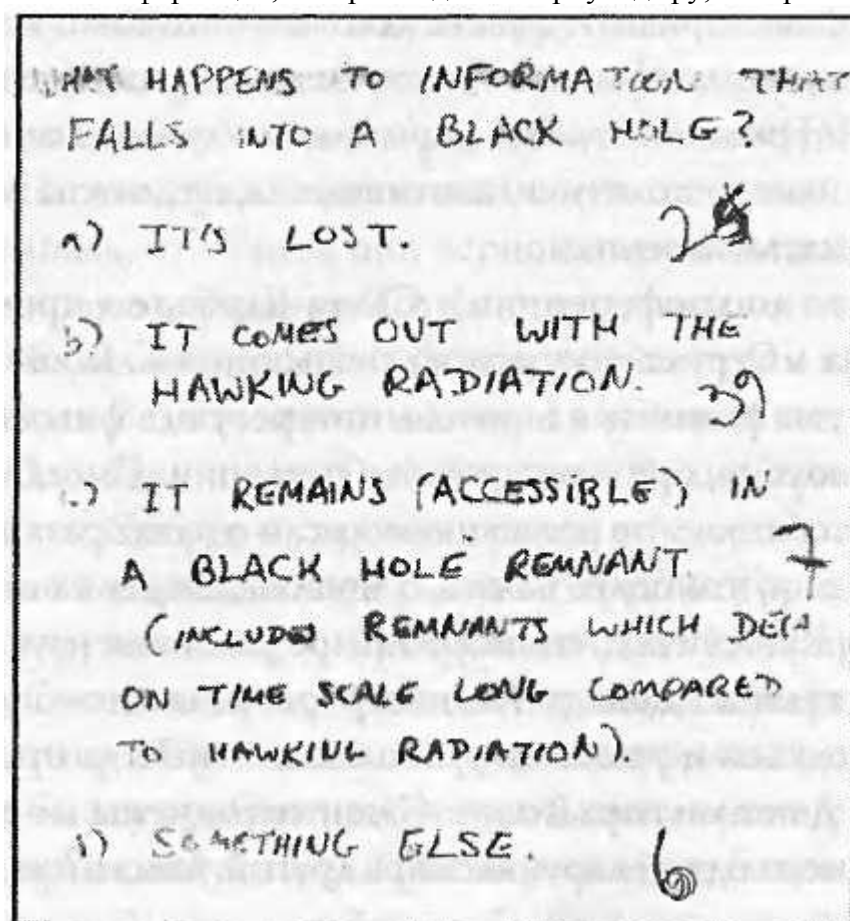 WHAT HAPPENS TO INFORMATION THAT
FALLS INTO A BLACK HOLE?
a) IT'S LOST. 25
b) IT COMES OUT WITH THE
HAWKING RADIATION. 39
c) IT REMAINS (ACCESSIBLE) IN
A BLACK HOLE REMNANT. 7
(INCLUDES REMNANTS WHICH
ON TIME SCALE LONG COMPARED
TO HAWKING RADIATION).
d) SOMETHING ELSE. 6